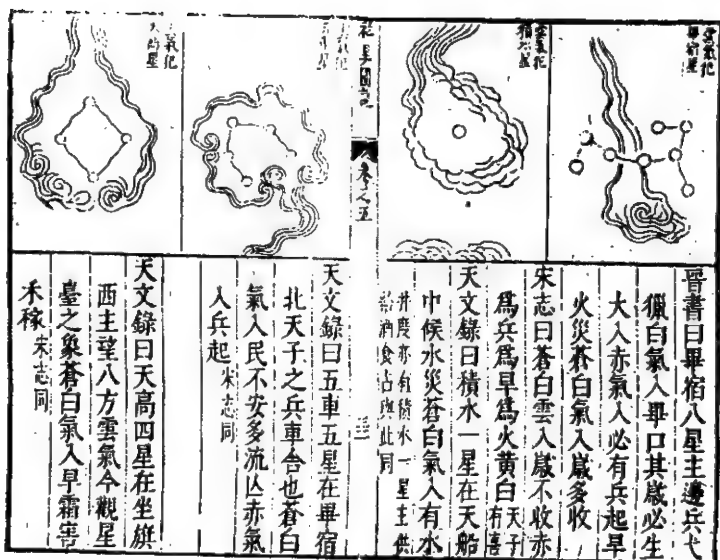 雲氣犯
畢宿星
晉書曰畢宿八星主邊兵弋
獵白氣入畢口其歲必生
大入赤氣入必有兵起旱
火災蒼白氣入歲多收
宋志曰蒼白雲入歲不收赤
爲兵爲旱爲火黃白天子有喜
雲氣犯
積水星
天文錄曰積水一星在天船
中候水災蒼白氣入有水
井度亦有積水一星主供
酒食占與此同
卷之五
天文錄曰五車五星在畢宿
北天子之兵車舍也蒼白
氣入民不安多流亾赤氣
入兵起宋志同
氣犯
天高星
天文錄曰天高四星在坐旗
西主望八方雲氣今觀星
臺之象蒼白氣入早霜害
禾稼宋志同